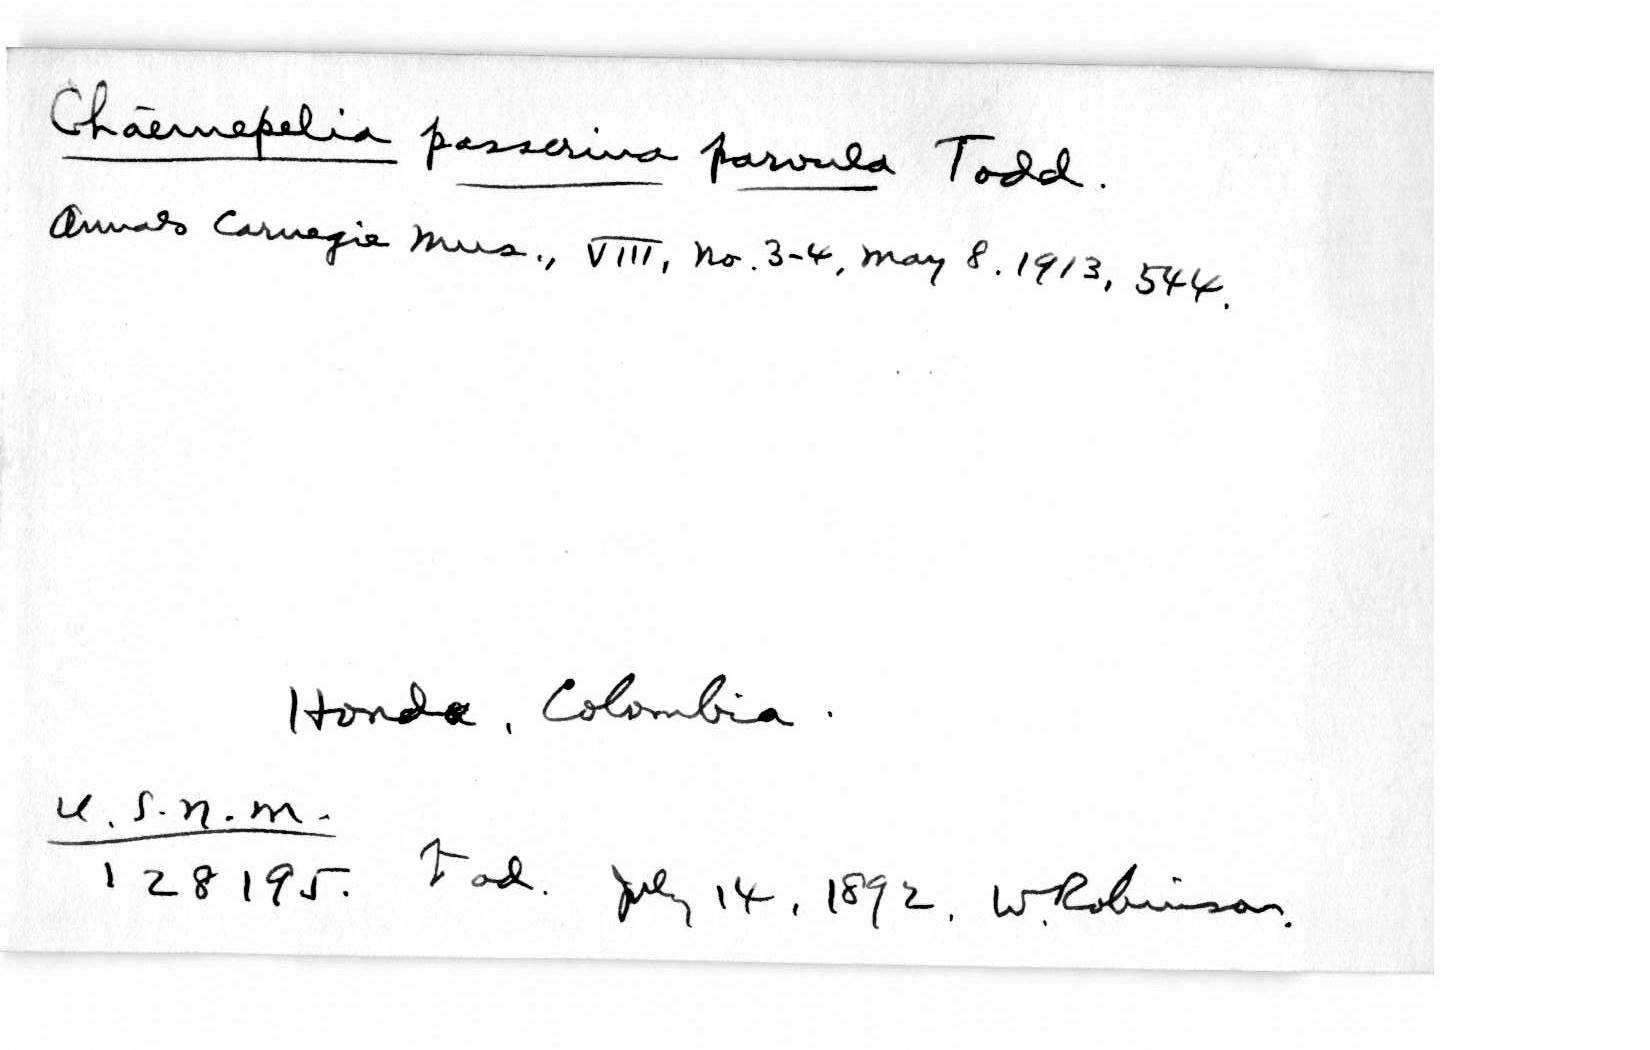 Chāemepelia passerina parvula Todd.
Annals Carnegie Mus., VIII, No. 3-4, May 8. 1913, 544.
Honda, Colombia.
U.S.N.M.
128195. ad. July 14, 1892. W. Robinson.